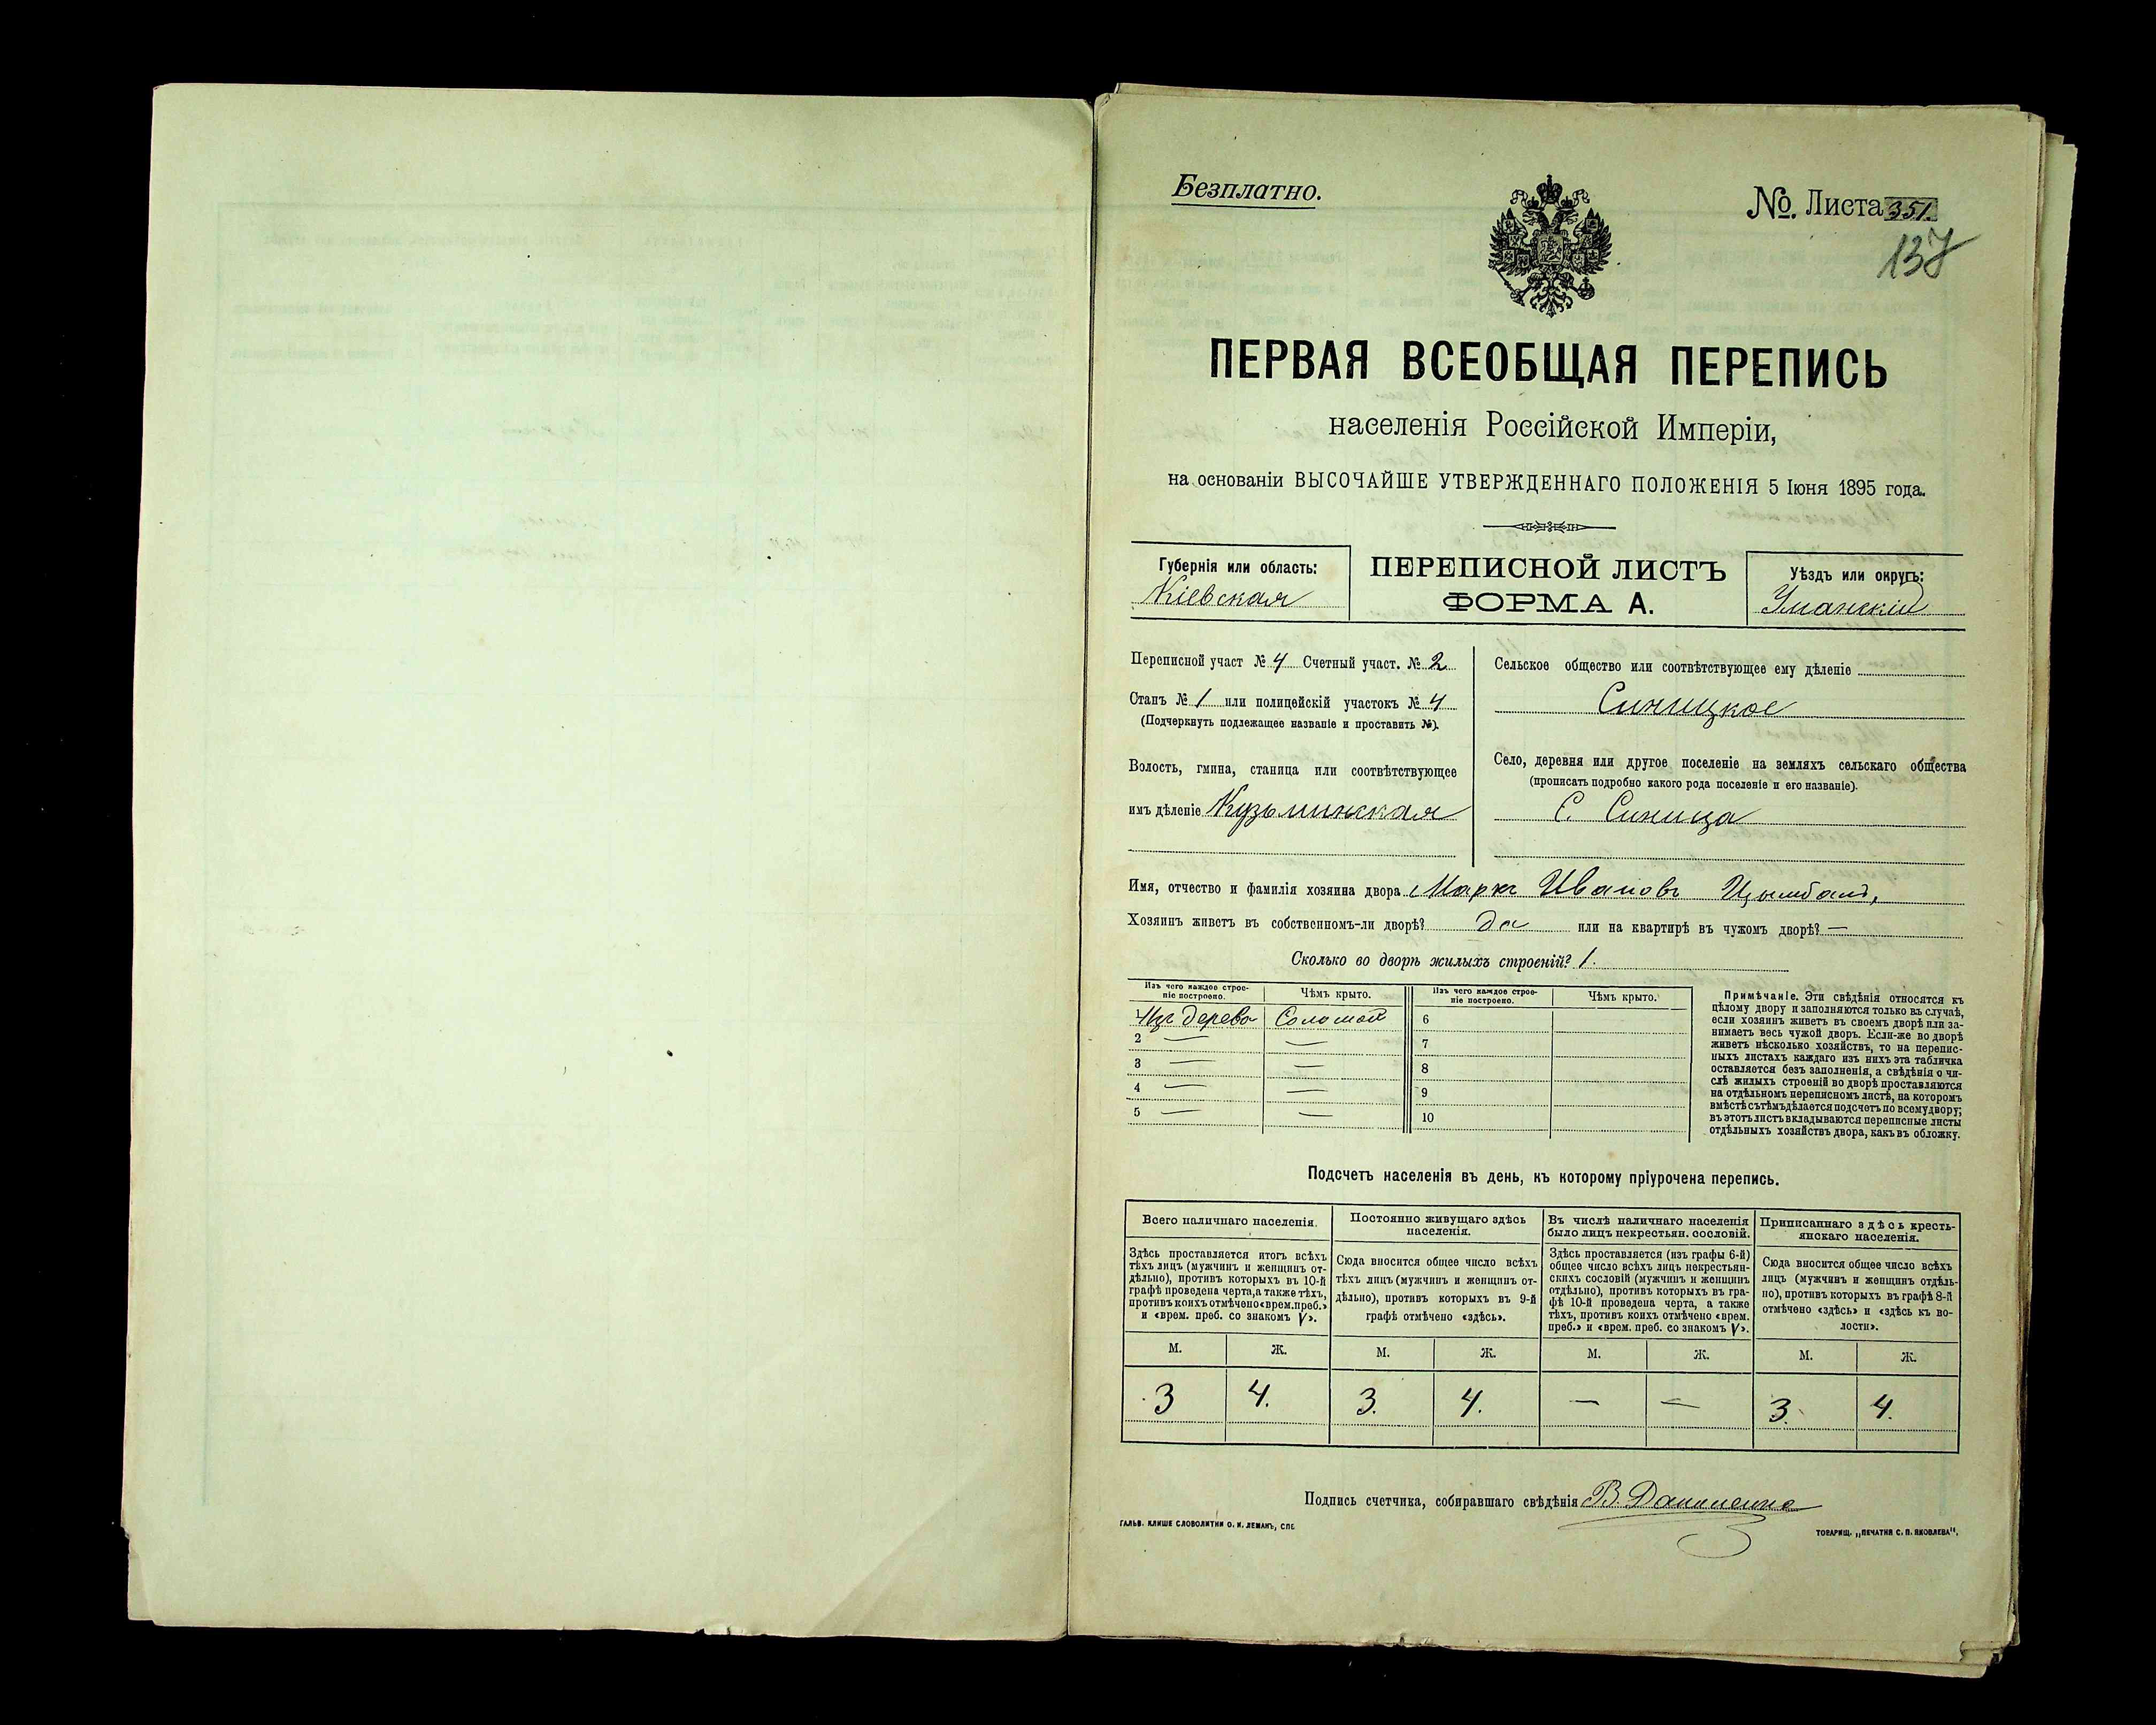 Безплатно.
№ Листа 351.
137
ПЕРВАЯ ВСЕОБЩАЯ ПЕРЕПИСЬ
населенія Россійской Имперіи,
на основаніи ВЫСОЧАЙШЕ УТВЕРЖДЕННАГО ПОЛОЖЕНІЯ 5 Іюня 1895 года.
Губернія или область:
Кіевская
ПЕРЕПИСНОЙ ЛИСТЪ
ФОРМА А.
Уѣздъ или округъ:
Уманскій
Переписной участ № 4 Счетный участ. № 2
Станъ № 1 или полицейскій участокъ № 4
(Подчеркнуть подлежащее названіе и проставить №).
Волость, гмина, станица или соотвѣтствующее
имъ дѣленіе Кузьминская
Сельское общество или соотвѣтствующее ему дѣленіе
Синицкое
Село, деревня или другое поселеніе на земляхъ сельскаго общества
(прописать подробно какого рода поселеніе и его названіе).
С. Синица
Имя, отчество и фамилія хозяина двора Марко Ивановъ Цымбалъ,
Хозяинъ живетъ въ собственномъ-ли дворѣ? да или на квартирѣ въ чужомъ дворѣ? —
Сколько во дворѣ жилыхъ строеній? 1.
Изъ чего каждое строе-
ніе построено.
Чѣмъ крыто.
Изъ чего каждое строе-
ніе построено.
Чѣмъ крыто.
1 Изъ дерева Соломой 6
2 — — 7
3 — — 8
4 — — 9
5 — — 10
Примѣчаніе. Эти свѣдѣнія относятся къ
цѣлому двору и заполняются только въ случаѣ,
если хозяинъ живетъ въ своемъ дворѣ или за-
нимаетъ весь чужой дворъ. Если-же во дворѣ
живетъ нѣсколько хозяйствъ, то на перепис-
ныхъ листахъ каждаго изъ нихъ эта табличка
оставляется безъ заполненія, а свѣдѣнія о чи-
слѣ жилыхъ строеній во дворѣ проставляются
на отдѣльномъ переписномъ листѣ, на которомъ
вмѣстѣ съ тѣмъ дѣлается подсчетъ по всему двору;
въ этотъ листъ вкладываются переписные листы
отдѣльныхъ хозяйствъ двора, какъ въ обложку.
Подсчетъ населенія въ день, къ которому пріурочена перепись.
Всего наличнаго населенія.
Здѣсь проставляется итогъ всѣхъ
тѣхъ лицъ (мужчинъ и женщинъ от-
дѣльно), противъ которыхъ въ 10-й
графѣ проведена черта, а также тѣхъ,
противъ коихъ отмѣчено «врем. преб.»
и «врем. преб. со знакомъ V».
Постоянно живущаго здѣсь
населенія.
Сюда вносится общее число всѣхъ
тѣхъ лицъ (мужчинъ и женщинъ от-
дѣльно), противъ которыхъ въ 9-й
графѣ отмѣчено «здѣсь».
Въ числѣ наличнаго населенія
было лицъ некрестьян. сословій.
Здѣсь проставляется (изъ графы 6-й)
общее число всѣхъ лицъ некрестьян-
скихъ сословій (мужчинъ и женщинъ
отдѣльно), противъ которыхъ въ гра-
фѣ 10-й проведена черта, а также
тѣхъ, противъ коихъ отмѣчено «врем.
преб.» и «врем. преб. со знакомъ V».
Приписаннаго здѣсь кресть-
янскаго населенія.
Сюда вносится общее число всѣхъ
лицъ (мужчинъ и женщинъ отдѣль-
но), противъ которыхъ въ графѣ 8-й
отмѣчено «здѣсь» и «здѣсь къ во-
лости».
М. Ж. М. Ж. М. Ж. М. Ж.
3 4. 3. 4. — — 3. 4.
Подпись счетчика, собиравшаго свѣдѣнія В. Даниленко
ГАЛЬВ. КЛИШЕ СЛОВОЛИТНИ О. И. ЛЕМАНЪ, СПБ.
ТОВАРИЩ. „ПЕЧАТНЯ С. П. ЯКОВЛЕВА".